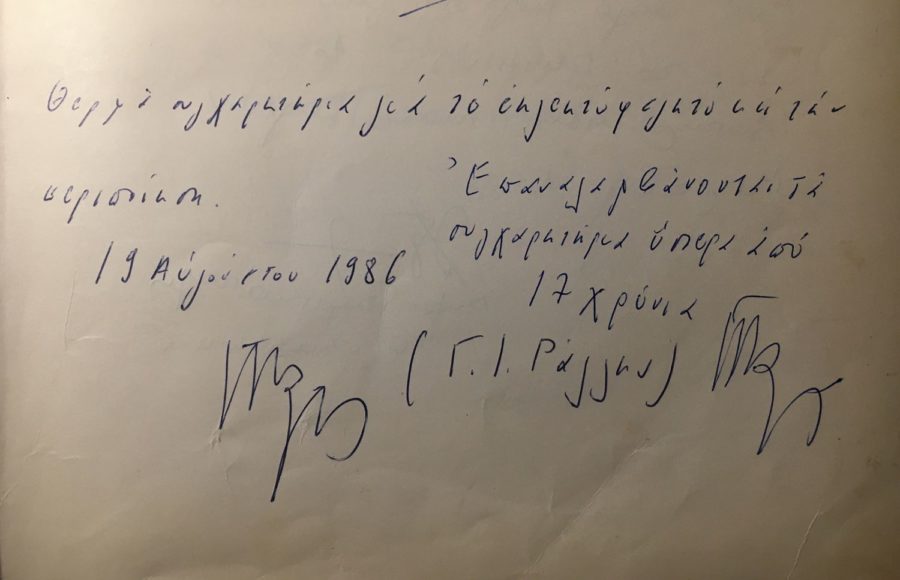 Θερμά συγχαρητήρια γιά τό ἐκλεκτό φαγητό καί τήν
περιποίηση.
19 Αὐγούστου 1986
Ἐπαναλαμβάνονται τά
συγχαρητήρια ὕστερα ἀπό
17 χρόνια
(Γ. Ι. Ράλλης)